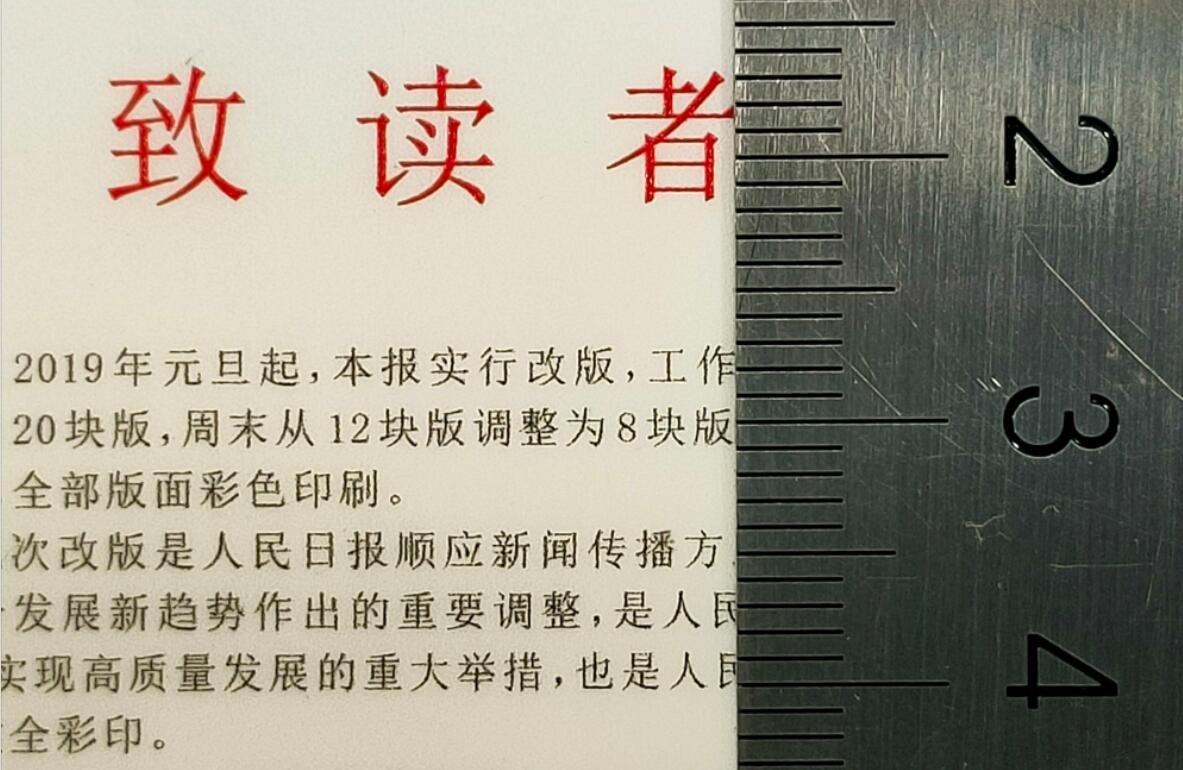 致读者
2019年元旦起,本报实行改版,工作
20块版,周末从12块版调整为8块版
全部版面彩色印刷。
次改版是人民日报顺应新闻传播方
发展新趋势作出的重要调整,是人民
实现高质量发展的重大举措,也是人民
全彩印。
2
3
4